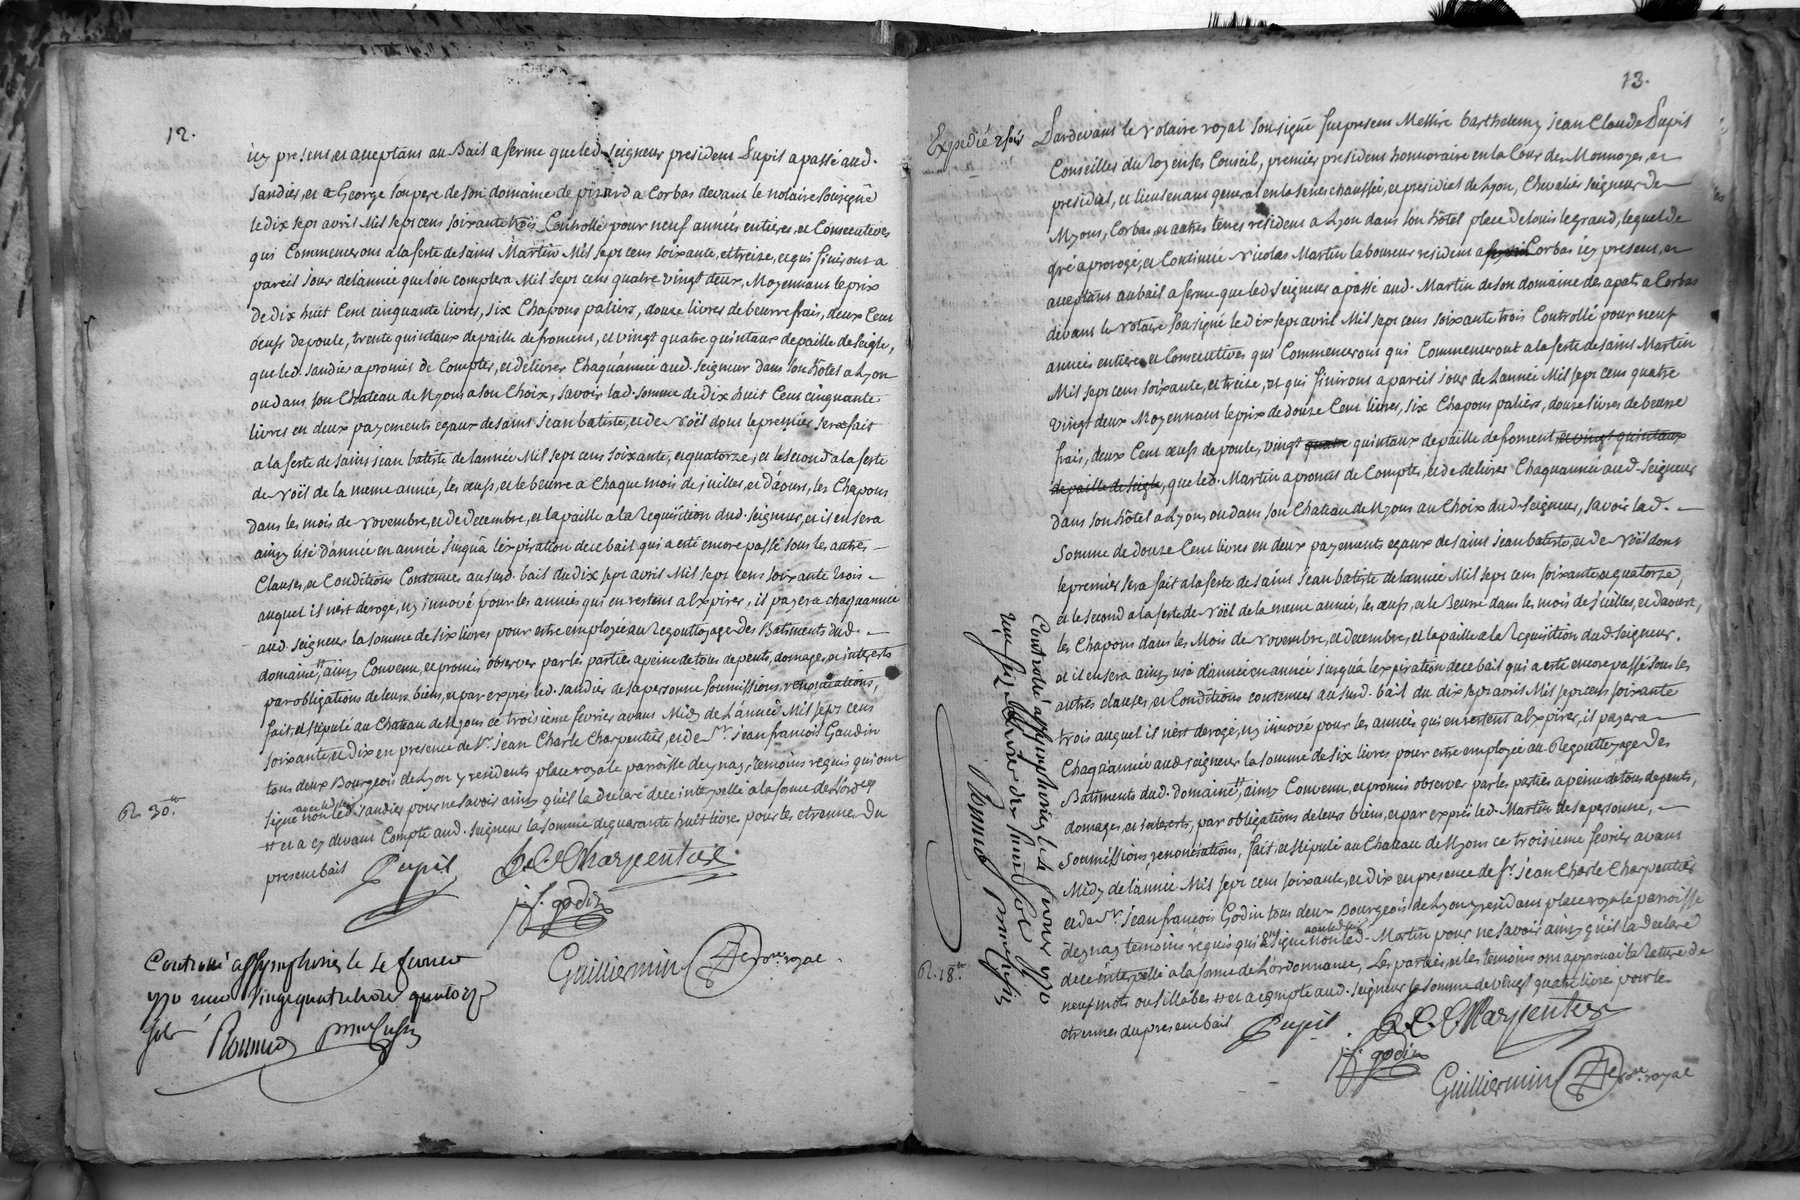 12.
icy present, et acceptant au Bail a ferme que led. seigneur president Pupil a passé aud.
Sandier, et a George son pere de son domaine de pizard a Corbas devant le notaire soussigné
le dix sept avril Mil sept cens soixante trois Controllé pour neuf années entieres, et Consecutives
qui Commenceront a la feste de saint Martin Mil sept cens soixante, et treize, et qui finiront a
pareil jour de l'année que l'on comptera Mil sept cens quatre vingt deux, Moyennant le prix
de dix huit Cent cinquante livres, six Chapons paliers, douze livres de beurre frais, deux Cent
oeufs de poule, trente quintaux de paille de froment, et vingt quatre quintaux de paille de seigle,
que led. Sandier a promis de Compter, et delivrer Chaq'année aud. seigneur dans son hôtel a Lyon
ou dans son Chateau de Myons a son Choix, savoir lad. somme de dix huit Cent cinquante
livres en deux payements egaux de saint jean batiste, et de Noël dont le premier sera fait
a la feste de saint jean batiste de l'année Mil sept cens soixante, et quatorze, et le second a la feste
de Noël de la meme année, les oeufs, et le beurre a Chaque mois de juillet, et d'aoust, les Chapons
dans les mois de Novembre, et de decembre, et la paille a la Requisition dud. seigneur, et il en sera
ainsy usé d'année en année jusqu'a l'expiration de ce bail qui a esté encore passé sous les autres
Clauses, et Conditions Contenues au susd. bail du dix sept avril Mil sept cens soixante trois
auquel il n'est derogé, ny innové pour les années qui en restent a Expirer, il payera chaquannée
aud. seigneur la somme de six livres pour estre employée au Regouttoyage des Batiments dud.
domaine, # ainsy Convenu, et promis observer par les parties a peine de tous depents, domages, et interests
par obligations de leurs biens, et par exprés led. Sandier de sa personne soumissions, renonciations,
fait, et stipulé au Chateau de Myons ce troisieme fevrier avant Midy de l'année Mil sept cens
soixante, et dix en presence de Sr. jean Charle Charpentier, et de Sr. jean françois Gaudin
tous deux Bourgeois de Lyon y residents place royale parroisse d'eynay, temoins requis qui ont
signé non led. Sandier pour ne savoir ainsy qu'il l'a declaré de ce interpellé a la forme de L'ordce
avec led. seigr.
R. 30.tt
# et a cy devant Compté aud. seigneur la somme de quarante huit livres pour les etrennes du
present bail
Pupil
J. C. Charpentier
j. f. godin
Guilliermin Nore. royal
Controllé a St symphorien le 4 fevrier
1770 reçu vingt quatre livres quatorze
sols
13.
Expedié 2 fois
Pardevant le Notaire royal soussigné fut present Messire barthelemy jean Claude Pupil
Conseiller du Roy en ses Conseils, premier president honnoraire en la Cour des Monnoyes, et
presidial, et lieutenant general en la senechaussée, et presidial de Lyon, Chevalier seigneur de
Myons, Corbas, et autres terres resident a Lyon dans son hôtel place de louis le grand, lequel de
gré a prorogé, et Continué Nicolas Martin laboureur resident a Corbas icy present, et
acceptant au bail a ferme que led. seigneur a passé aud. Martin de son domaine des apats a Corbas
devant le Notaire soussigné le dix sept avril Mil sept cens soixante trois Controllé pour neuf
années entieres, et Consecutives qui Commenceront qui Commenceront a la feste de saint Martin
Mil sept cens soixante, et treize, et qui finiront a pareil jour de l'année Mil sept cens quatre
vingt deux Moyennant le prix de douze Cent livres, six Chapons paliers, douze livres de beurre
frais, deux Cent oeufs de poule, vingt quatre quintaux de paille de froment et vingt quintaux
de paille de seigle, que led. Martin a promis de Compter, et de delivrer Chaquannée aud. seigneur
dans son hôtel a Lyon, ou dans son Chateau de Myons au Choix dud. seigneur, savoir lad.
Somme de douze Cent livres en deux payements egaux de saint jean batiste, et de Noël dont
le premier sera fait a la feste de saint jean batiste de l'année Mil sept cens soixante, et quatorze,
et le second a la feste de Noël de la meme année, les oeufs, et le Beurre dans les mois de juillet, et d'aoust,
les Chapons dans les Mois de Novembre, et decembre, et la paille a la Requisition dud. seigneur.
et il en sera ainsy usé d'année en année jusqu'a l'expiration de ce bail qui a esté encore passé sous les
autres clauses, et Conditions contenues au susd. bail du dix sept avril Mil sept cens soixante
trois auquel il n'est derogé, ny innové pour les années qui en restent a Expirer, il payera
Chaquannée aud. seigneur la somme de six livres pour estre employée au Regouttoyage des
Batiments dud. domaine, # ainsy Convenu, et promis observer par les parties a peine de tous depents,
domages, et interests, par obligations de leurs biens, et par exprés led. Martin de sa personne,
Soumissions, renonciations, fait, et stipulé au Chateau de Myons ce troisieme fevrier avant
Midy de l'année Mil sept cens soixante, et dix en presence de Sr. jean Charle Charpentier
et de Sr. jean françois Godin tous deux Bourgeois de Lyon y residants place royale parroisse
d'eynay temoins requis qui ont signé non led. Martin pour ne savoir ainsy qu'il l'a declaré
avec led. seigr.
de ce interpellé a la forme de L'ordonnance, Les parties, et les temoins ont approuvé la Rature de
R. 18.tt
neuf mots ou sillabes # et a compté aud. seigneur la somme de vingt quatre livres pour les
etrennes du present bail
Pupil
J. C. Charpentier
j. f. godin
Guilliermin Nore. royal
Controllé a St symphorien le 4 fevrier 1770